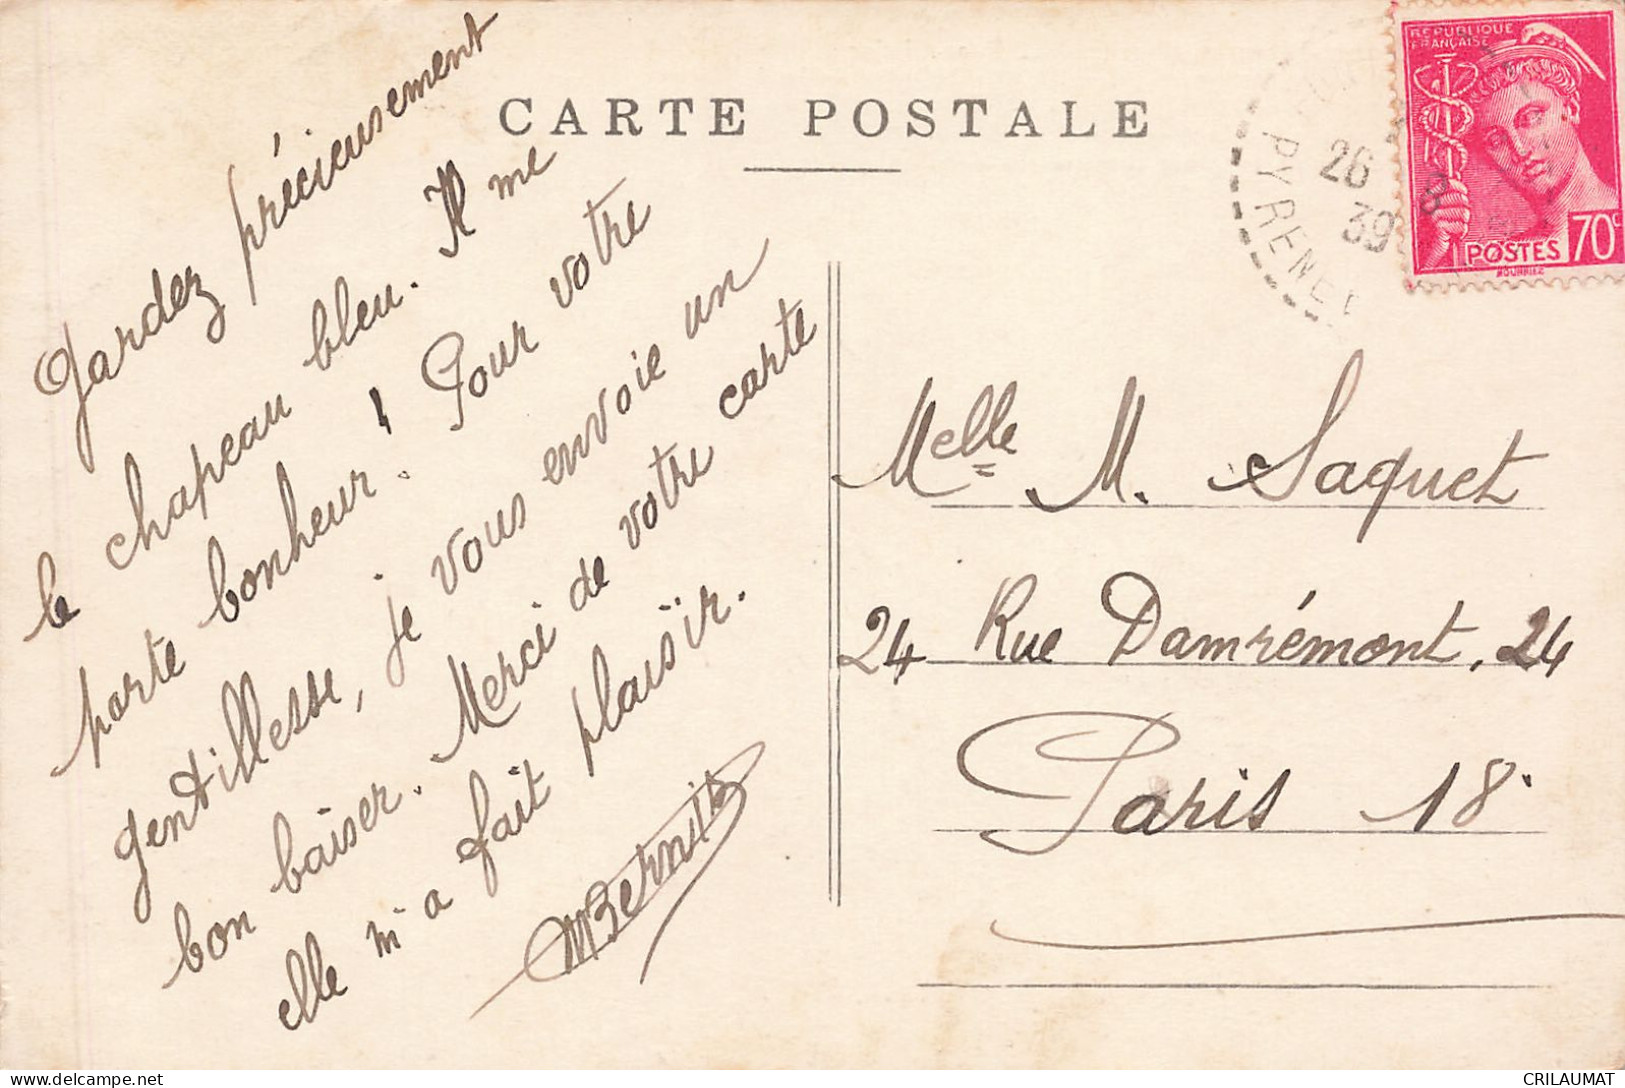 CARTE POSTALE
Gardez précieusement
le chapeau bleu. Il me
porte bonheur! Pour votre
gentillesse, je vous envoie un
bon baiser. Merci de votre carte
elle m'a fait plaisïr.
MBernis
REPUBLIQUE
FRANÇAISE
POSTES 70c
MOURRIEZ
PYRENEE
26 8
39
Melle M. Saquet
24 Rue Damrémont, 24
Paris 18
delcampe.net
CRILAUMAT